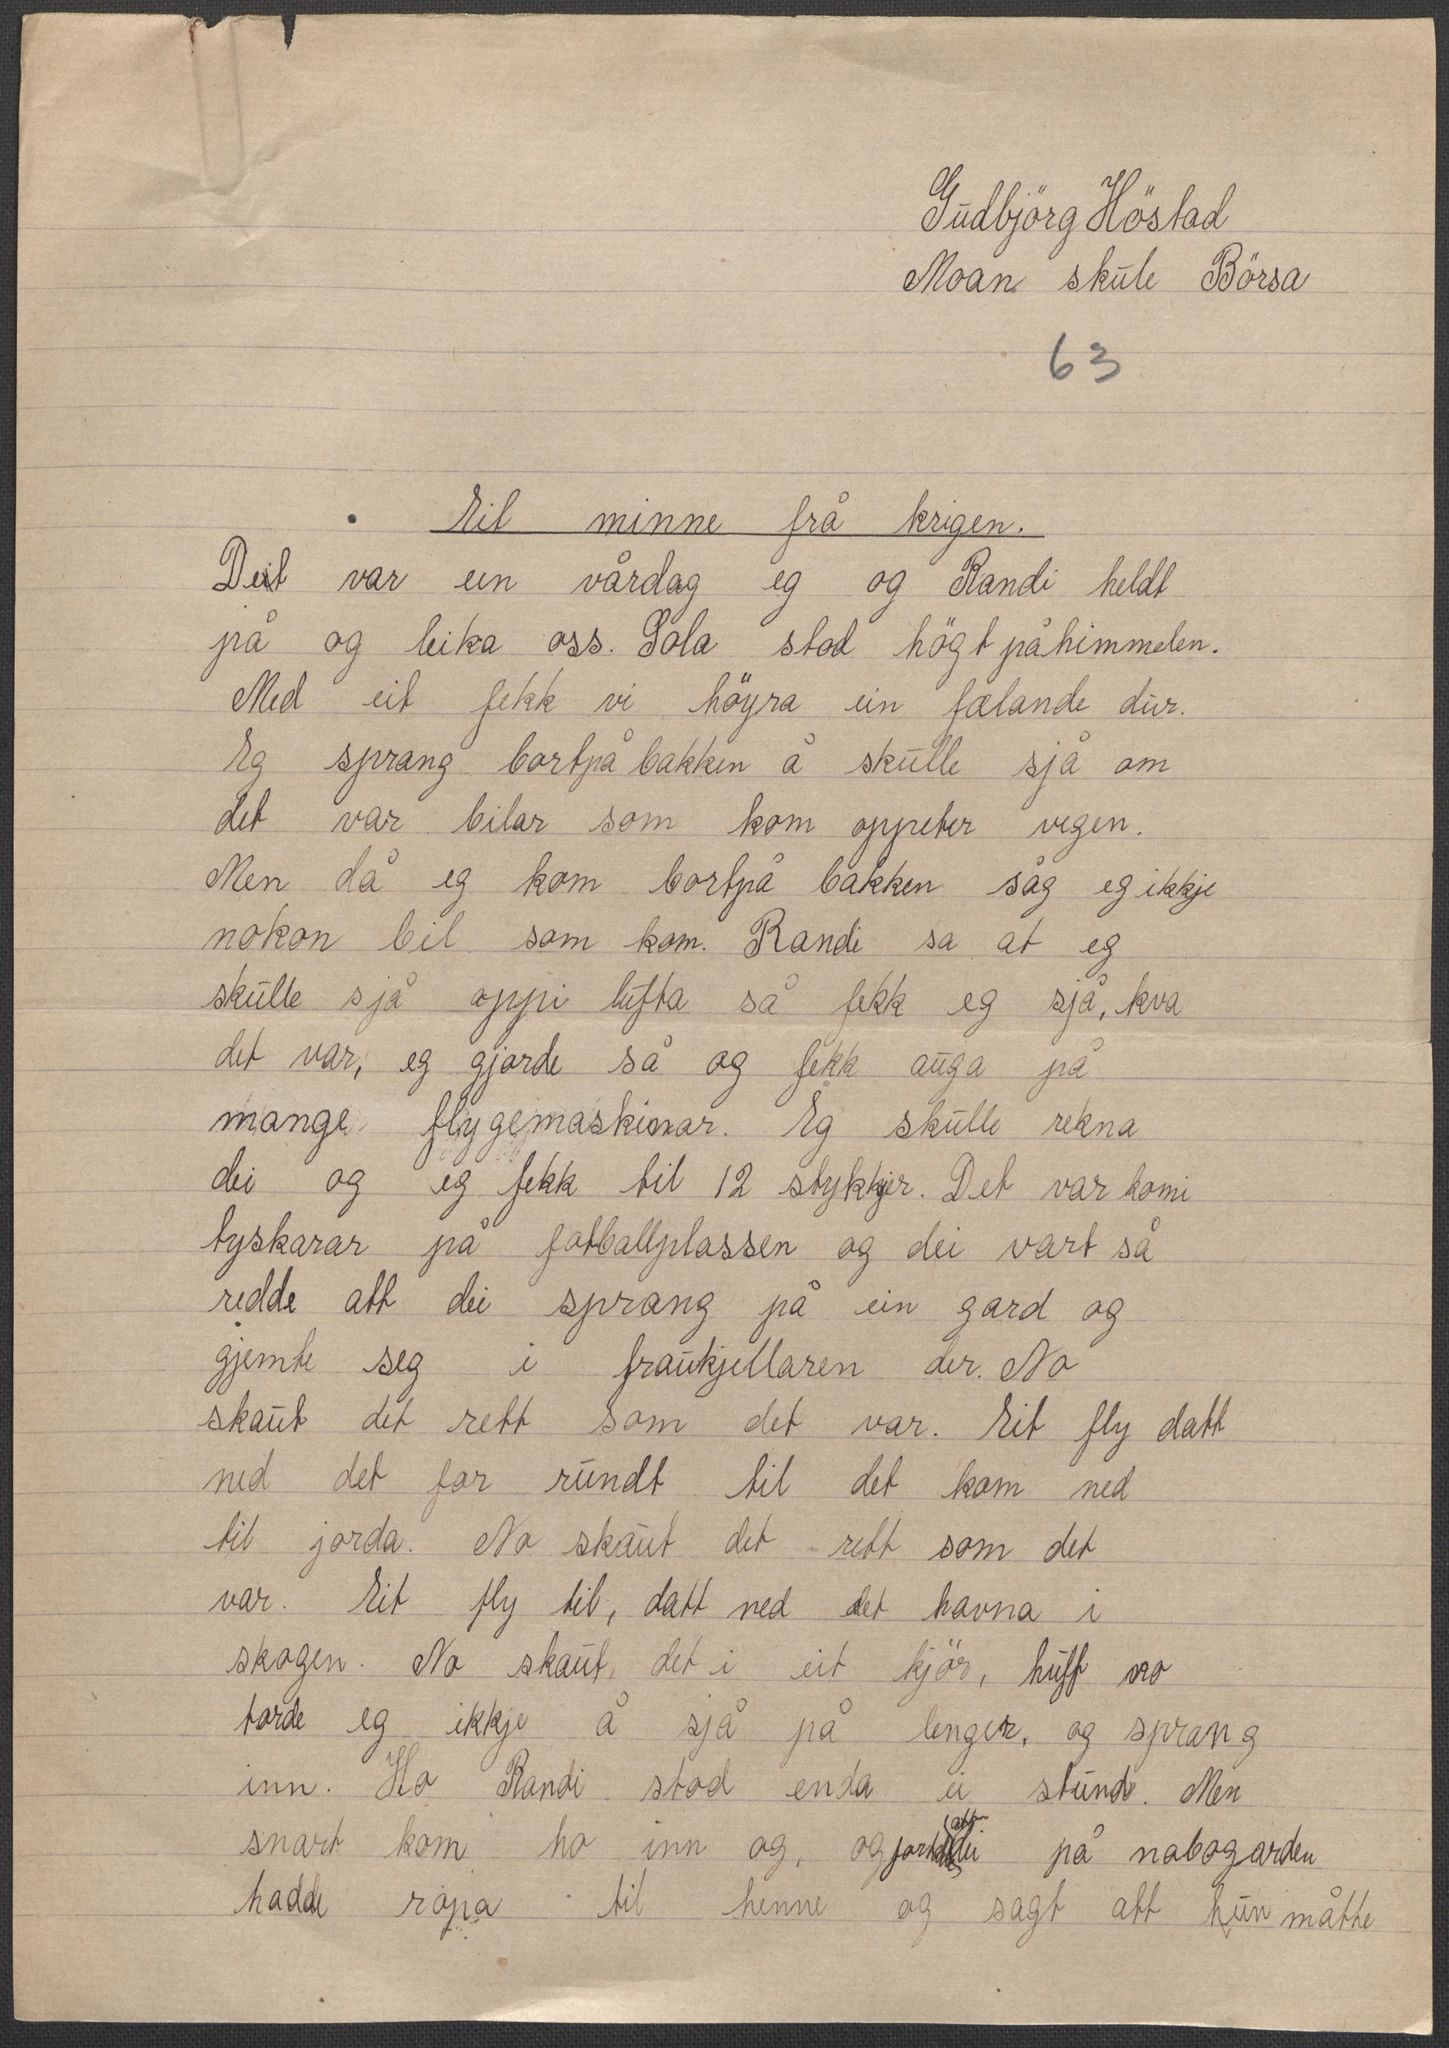 Gudbjörg Höstad
Moan skule Börsa
63
Eit minne frå krigen.
Det var ein vårdag eg og Randi heldt
på og leika oss. Sola stod högt på himmelen.
Med eit fekk vi höyra ein fælande dur.
Eg sprang bortpå bakken å skulle sjå om
det var bilar som kom oppeter vegen.
Men då eg kom bortpå bakken såg eg ikkje
nokon bil som kom. Randi sa at eg
skulle sjå oppi lufta så fekk eg sjå, kva
det var, eg gjorde så og fekk auga på
mange flygemaskinar. Eg skulle rekna
dei og eg fekk til 12 stykkjer. Det var komi
tyskarar på fotballplassen og dei vart så
redde att dei sprang på ein gard og
gjemte seg i fraukjellaren der. No
skaut det rett som det var. Eit fly datt
ned det for rundt til det kom ned
til jorda. No skaut det rett som det
var. Eit fly til, datt ned det havna i
skogen. No skaut, det i eit kjör, huff no
torde eg ikkje å sjå på lenger, og sprang
inn. Ho Randi stod enda ei stund. Men
snart kom ho inn og, og att dei på nabogarden
hadde ropa til henne og sagt att hun måtte